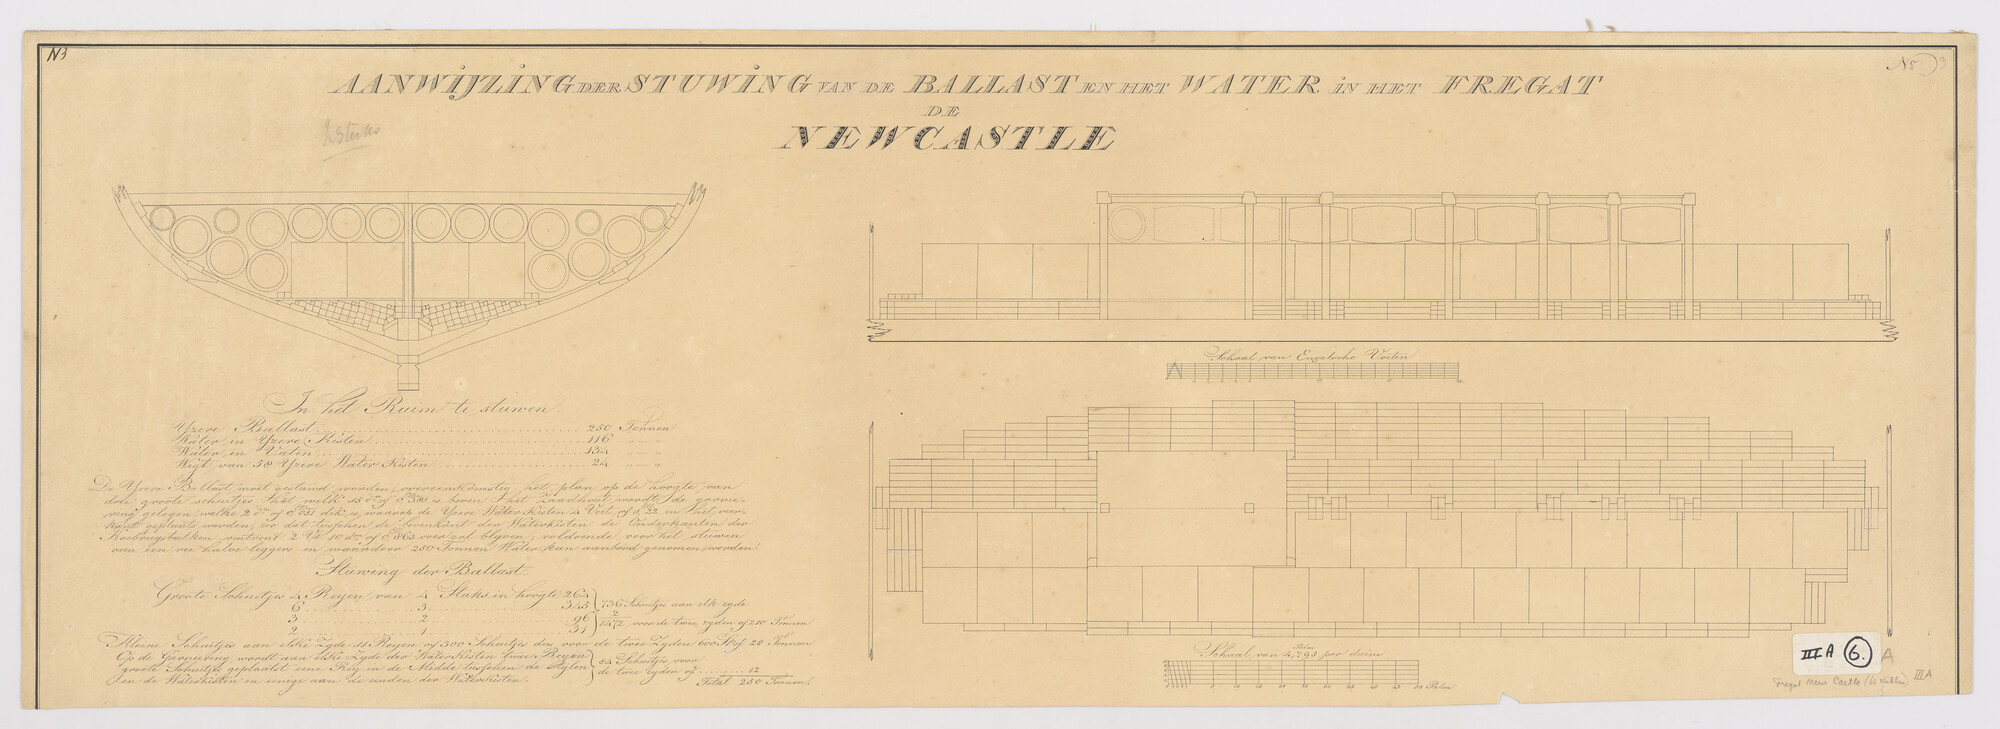 N3
No 3
AANWIJZING DER STUWING VAN DE BALLAST EN HET WATER IN HET FREGAT
DE
NEWCASTLE
2 Stuks
In het Ruim te stuwen.
Yzere Ballast 250 Tonnen
Water in Yzere Kisten 116 " — "
Water in Vaten 134 " — "
Wigt van 58 Yzere Water Kisten 24 " — "
De Yzere Ballast moet gestuwd worden, overeenkomstig het plan op de hoogte van
drie groote schuitjes het welk 15 dm of 0,393 is, boven het Zaadhout wordt de garnie-
ring gelegen welke 2 dm of 0,053 dik is, waarop de Yzere Water Kisten 4 Voet, of 1,22 in het vier-
kant geplaats worden, zoo dat tusschen de bovenkant der Waterkisten de Onderkanten der
Koebrugsbalken omtrent 2 Vt 10 dm of 0,863 over zal blyven, voldoende voor het stuwen
van een en halve leggers en waardoor 250 Tonnen Water kan aanbord genomen worden.
Stuwing der Ballast.
Groote Schuitjes 4 Reyen van 4 Stuks in hoogte 264
6 3 345
3 2 96
2 1 31
736 Schuitjes aan elk zyde
2
1472 voor de twee zyden of 210 Tonnen
Kleine Schuitjes aan elke Zyde 11 Reyen of 300 Schuitjes dus voor de twee Zyden 600 Stuks of 28 Tonnen
Op de Garniering wordt aan elke Zyde der Water Kisten twee Reyen
groote Schuitjes geplaatst eene Rey in de Midde tusschen de Stylen
en de Waterkisten en eenige aan de einden der Waterkisten.
84 Schuitjes voor
de twee zyden of 12
Total 250 Tonnen
Schaal van Engelsche Voeten
Schaal van 4,793 per duim
5 10 15 20 25 30 35 40 45 50 Palm
III A 6. A
Fregat New Castle
III A